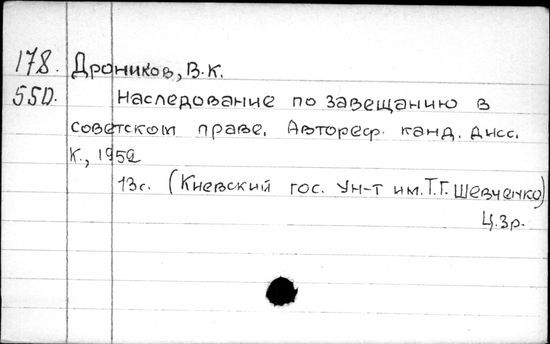 178. Дроников, В.К.
55D. Наследование по завещанию в
советском праве. Автореф. канд. дисс.
К., 1952
13с. (Киевский гос. Ун-т им. Т.Г. Шевченко)
Ц.3р.